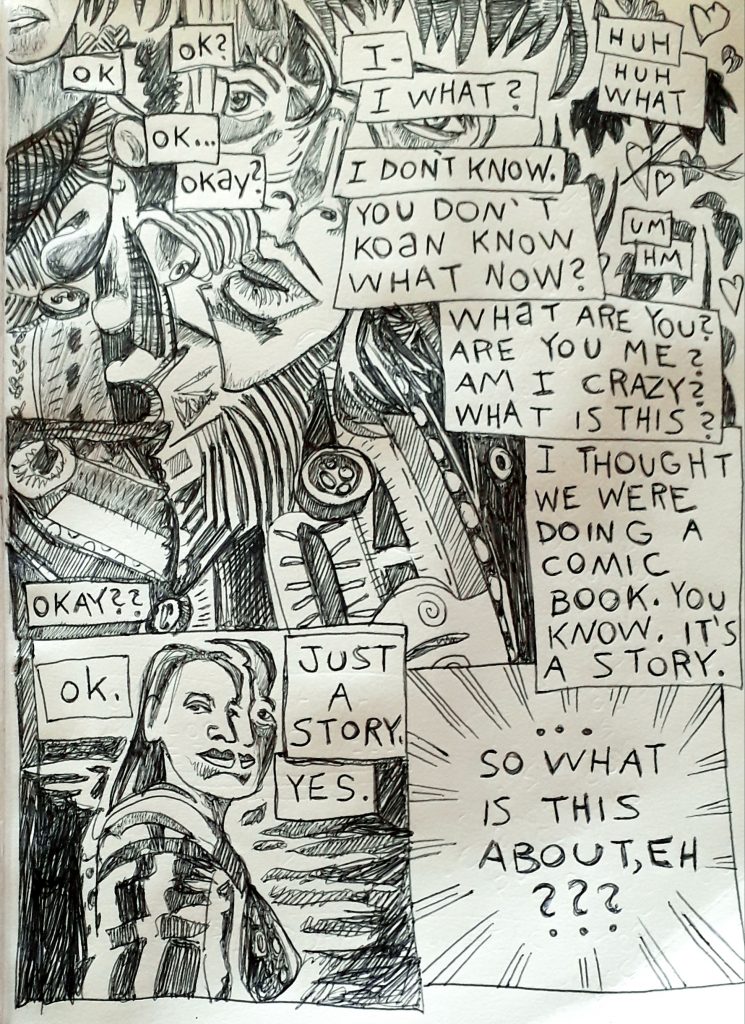 OK
OK?
OK...
OKay?
I-
I WHAT?
HUH
HUH
WHAT
I DON'T KNOW.
YOU DON'T
KOaN KNOW
WHAT NOW?
UM
HM
WHaT ARE YOU?
ARE YOU ME?
AM I CRAZY?
WHAT IS THIS?
I THOUGHT
WE WERE
DOING A
COMIC
BOOK. YOU
KNOW. IT'S
A STORY.
OKAY??
OK.
JUST
A
STORY.
YES.
...
SO WHAT
IS THIS
ABOUT, EH
???
...